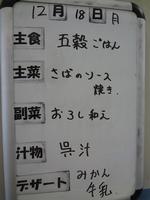 12月18日 月
主食 五穀ごはん
主菜 さばのソース
焼き
副菜 おろし和え
汁物 呉汁
デザート みかん
牛乳